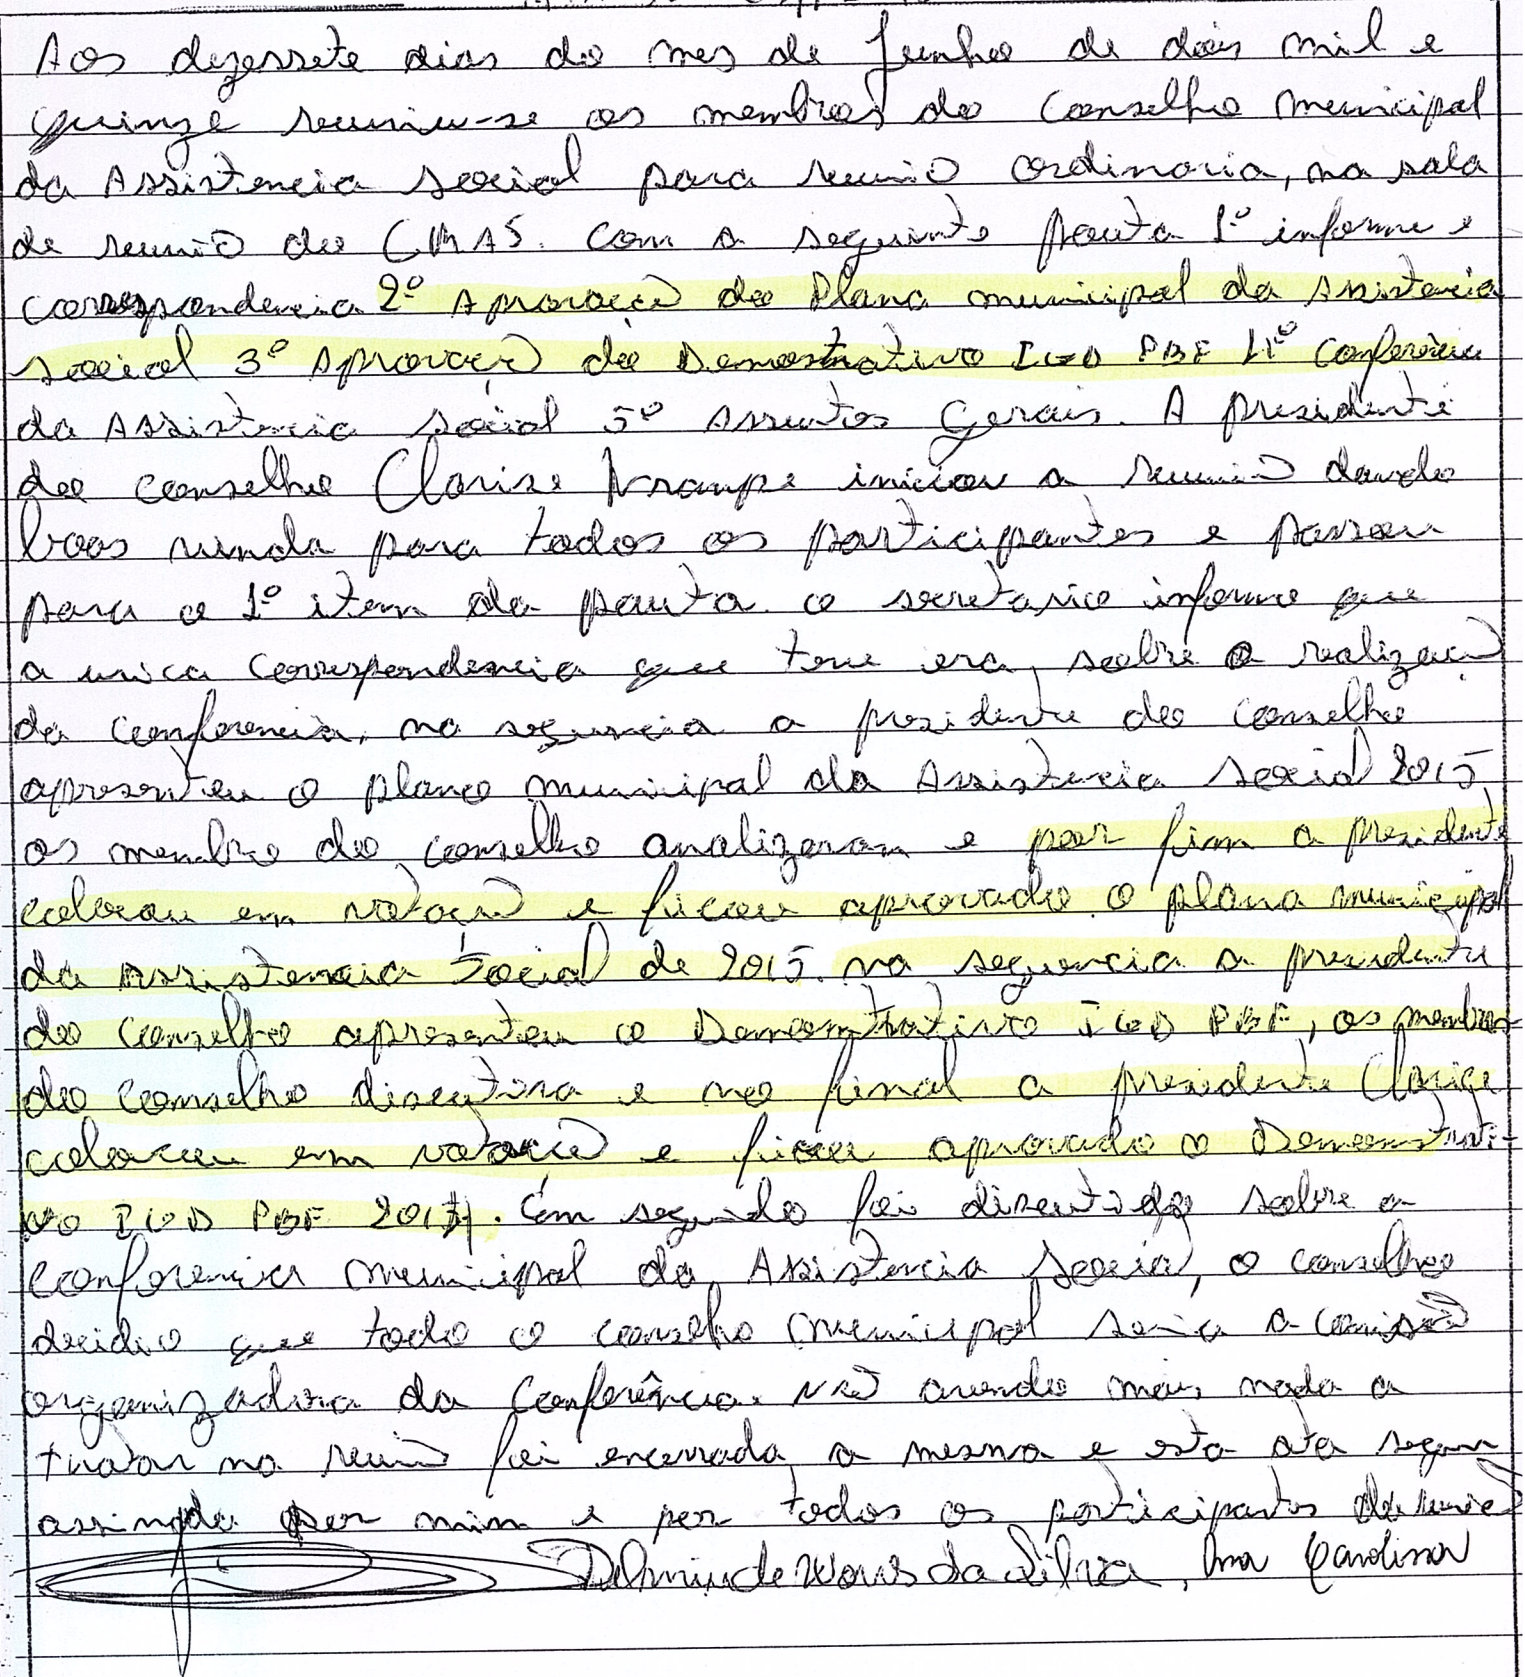 Aos dezessete dias do mes de Junho de dois mil e
quinze reuniu-se os membros do Conselho Municipal
da Assistencia Social para reunião ordinaria, na sala
de reunião do CMAS. Com a seguinte pauta 1º informe e
correspondencia 2º Aprovação do Plano municipal da Assistencia
Social 3º Aprovação do Demostrativo IGD PBF 4º Conferencia
da Assistencia Social 5º Assuntos Gerais. A presidente
do conselho Clarise iniciou a reunião dando
boas vinda para todos os participantes e passou
para o 1º item da pauta. o secretario informo que
a unica correspondencia que teve era, sobre a realização
da conferencia, na sequencia a presidente do conselho
apresenteu o plano municipal da Assistencia Social 2015,
os membro do conselho analizaram e por fim a presidente
colocou em votação e ficou aprovado o plano municipal
da Assistencia Social de 2015. na sequencia a presidente
do Conselho apresenteu o Demonstrativo IGD PBF, os membros
do conselho discutira e no final a presidente Clarise
colocou em votação e ficou aprovado o Demonstrati-
vo IGD PBF. Em seguida foi discutido sobre a
conferencia municipal da Assistencia Social, o conselho
decidio que todo o conselho municipal seria a comissão
organizadora da Conferência. Não avendo mais nada a
tratar na reunião foi encerrada a mesma e esta ata segue
assinada por mim e por todos os participantes da reunião
da Silva, Ana Carolina